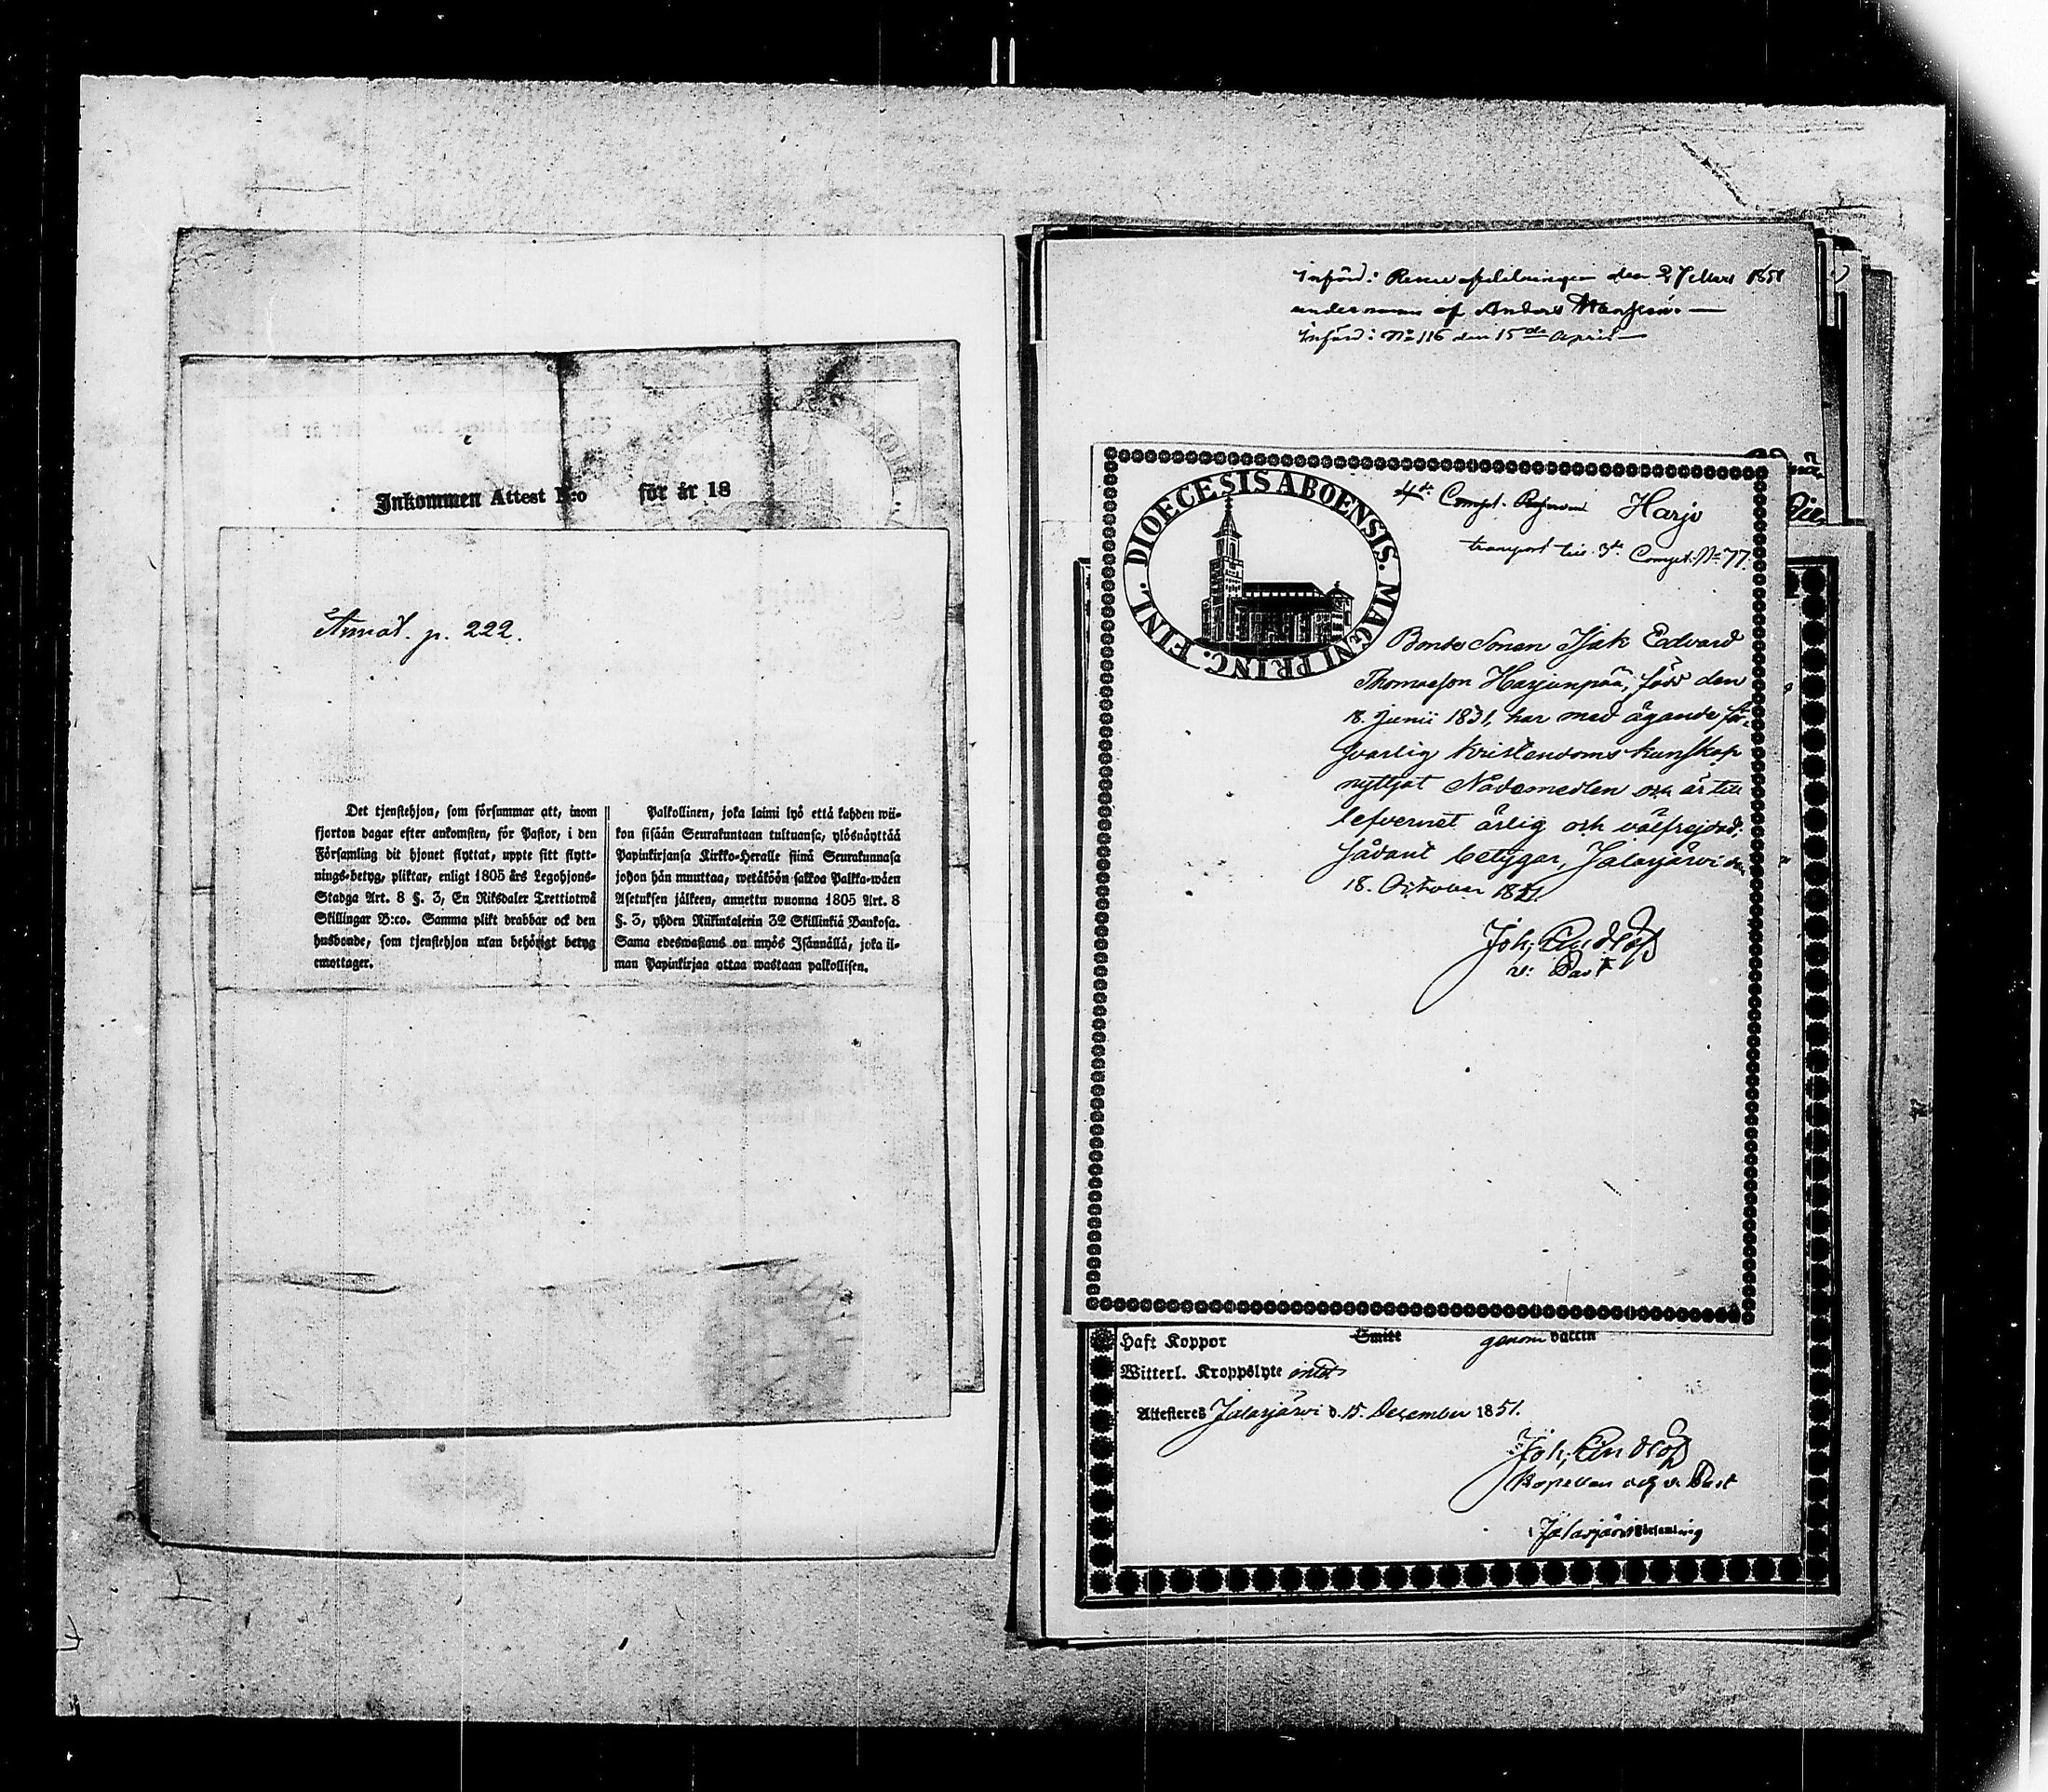 Inkommen Attest N:o för år 18
Annot. p. 222.
Det tjenstehjon, som försummar att, inom
fjorton dagar efter ankomsten, för Pastor, i den
Församling dit hjonet flyttat, uppte sitt flytt-
nings-betyg, pliktar, enligt 1805 års Legohjons-
Stadga Art. 8 §. 3, En Riksdaler Trettiotwå
Skillingar B:co. Samma plikt drabbar ock den
husbonde, som tjenstehjon utan behörigt betyg
emottager.
Palkollinen, joka laimi lyö että kahden wii-
kon sisään Seurakuntaan tultuansa, ylösnäyttää
Papinkirjansa Kirkko-Herralle siinä Seurakunnasa
johon hän muuttaa, wetäköön sakkoa Palkka-wäen
Asetuksen jälkeen, annettu wuonna 1805 Art. 8
§. 3, yhden Riikintalerin 32 Skillinkiä Bankosa.
Sama edeswastaus on myös Isännällä, joka il-
man Papinkirjaa ottaa wastaan palkollisen.
införd: den 27 Mars 1851
af Anders
införd: No 116 den 15de April
DIOECESIS ABOENSIS. MAGNI PRINC. FINL.
4de Compt. Harjo
transport till 3de Compt. No 77.
Bonde Sonen Isak Edvard
Thomasson Harjunpää, född den
18. Junii 1831, har med ägande för-
svarlig kristendoms kunskap
nyttjat Nådemedlen och är till
lefvernet ärlig och välfrejdad;
sådant betygar, Jalasjärvi den
18. October 1851.
Joh. Lindlöf
v: Past
Haft Koppor Smitt genom vaccin
Witterl. Kroppslyte intet
Attesteres Jalasjärvi d. 15. December 1851.
Joh. Lindlöf
Kapellan och v. Past
i Jalasjärvi Församling